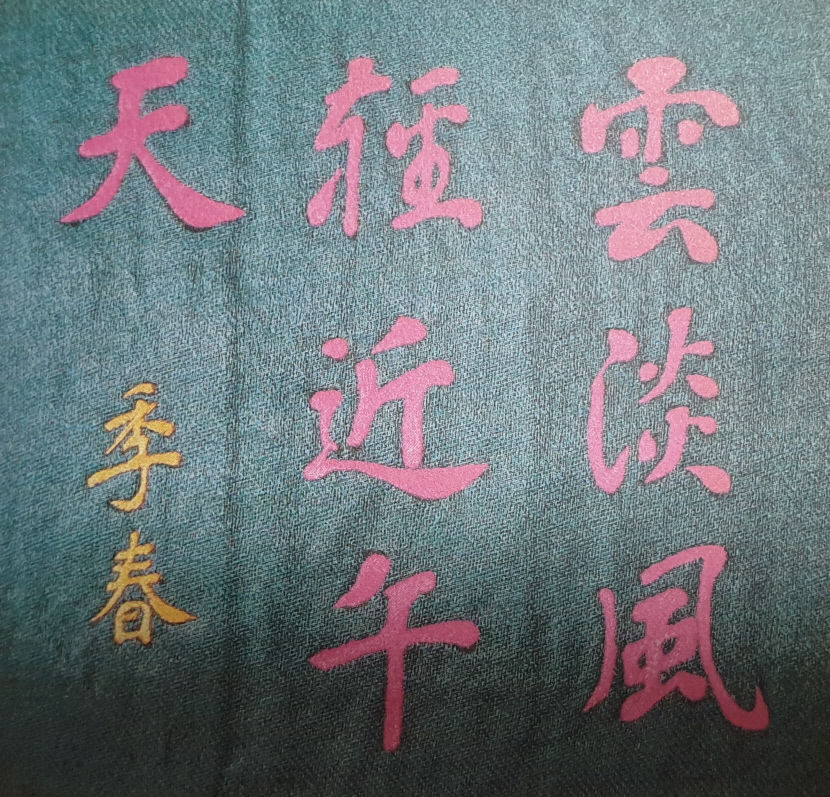 雲淡風
輕近午
天
季春